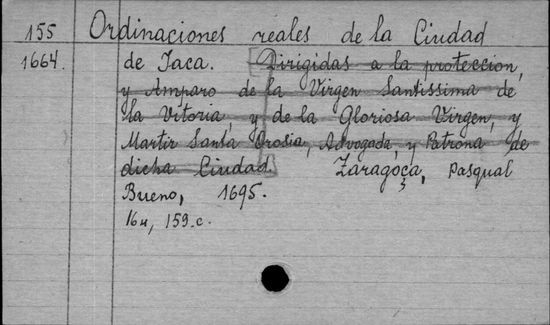 155 Ordinaciones reales de la Ciudad
1664. de Jaca. [Dirigidas a la proteccion,
y Amparo de la Virgen Santissima de
la Vitoria, y de la Gloriosa Virgen, y
Martir Santa Orosia, Advogada, y Patrona de
dicha Ciudad.] Zaragoça, Pasqual
Bueno, 1695.
16u, 159.c.